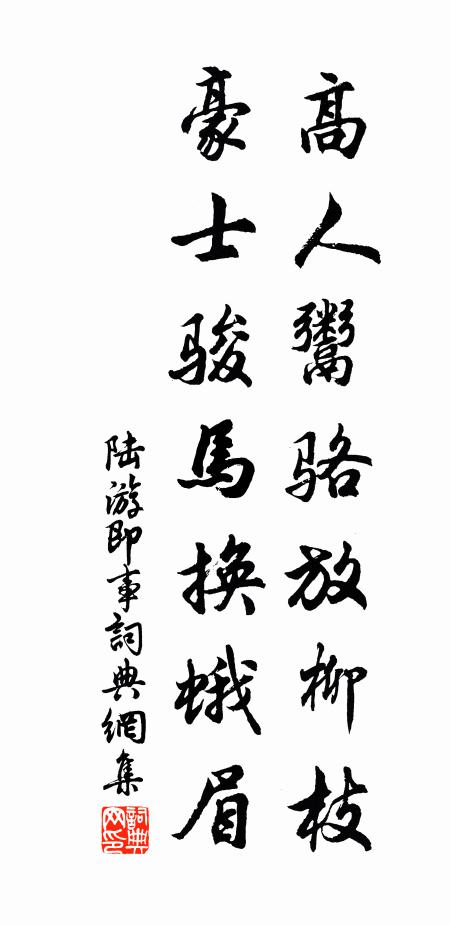 高人鬻骆放柳枝
豪士骏馬换蛾眉
陆游即事詞典網集
詞典网印